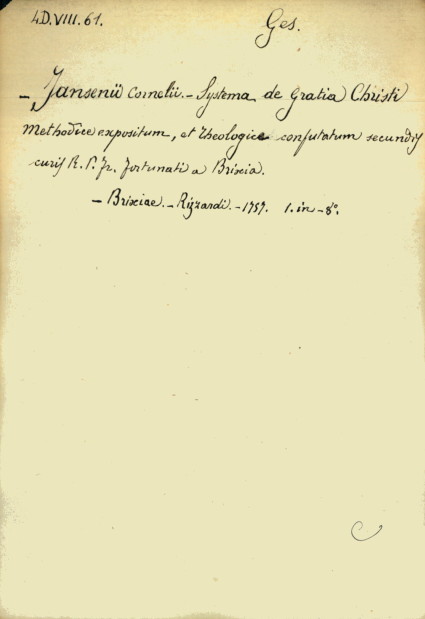 4.D.VIII.61.
Ges.
- Jansenii Cornelii. - Systema de Gratia Christi
methodice expositum, et theologice confutatum secundis
curis R. P. Fr. Fortunati a Brixia.
- Brixiae. - Rizzardi. - 1757. 1. in - 8°.